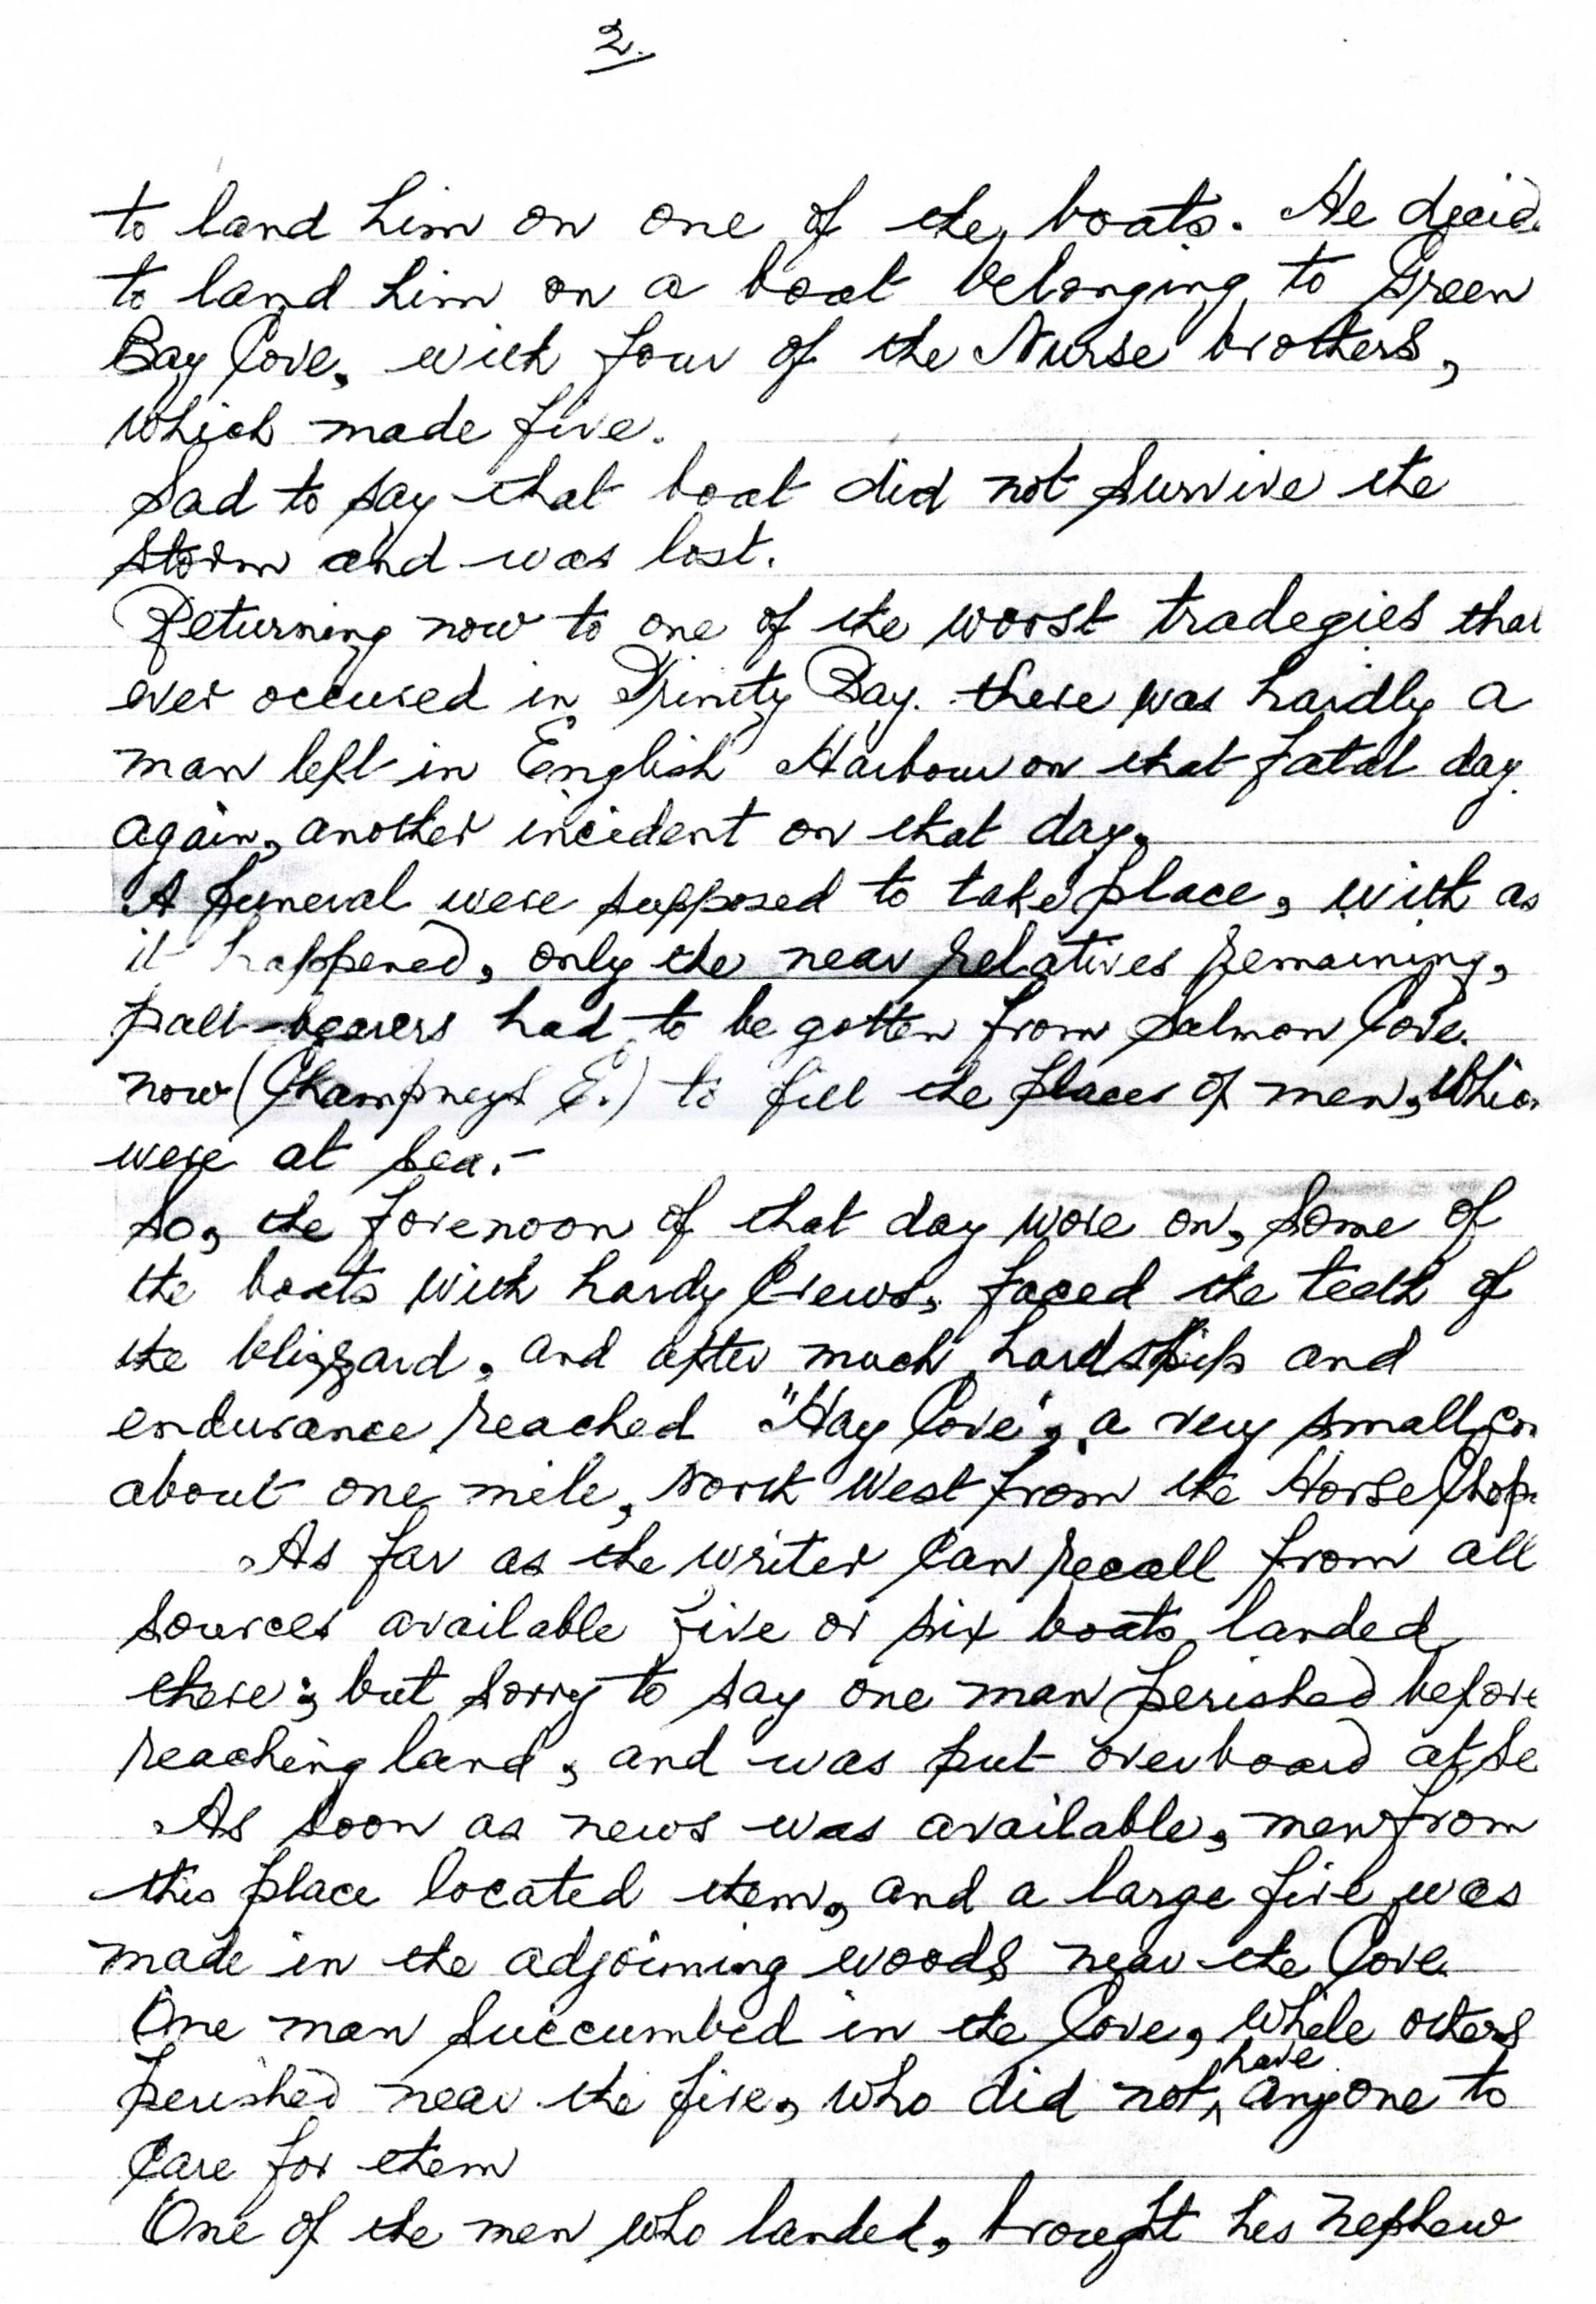 2.
to land him on one of the boats. He decid
to land him on a boat belonging to Green
Bay Cove, with four of the Nurse brothers,
which made five.
Sad to say that boat did not survive the
storm and was lost.
Returning now to one of the worst tradegies that
ever occured in Trinity Bay. there was hardly a
man left in English Harbour on that fatal day.
again, another incident on that day,
A funeral were supposed to take place, with as
it happened, only the near relatives remaining,
pall-bearers had to be gotten from Salmon Cove.
now (Champneys E.) to fill the places of men, Whic
were at sea.-
So, the forenoon of that day wore on, some of
the boats with hardy Crews, faced the teeth of
the blizzard, and after much hardship and
endurance reached "Hay Cove", a very small co
about one mile, North West from the Horse Chop
As far as the writer Can recall from all
sources available five or six boats landed
there; but sorry to say one man perished before
reaching land, and was put overboard at se
As soon as news was available, men from
this place located them, and a large fire was
made in the adjoining woods near the Cove.
One man succumbed in the Cove, while others
perished near the fire, who did not have anyone to
Care for them
One of the men who landed, brought his nephew